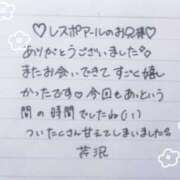 ♡レスポアールのお兄様♡
ありがとうございました。
またお会いできてすごく嬉し
かったです♡今回もあっという
間の時間でしたね(^^)
ついたくさん甘えてしまいました。
芹沢